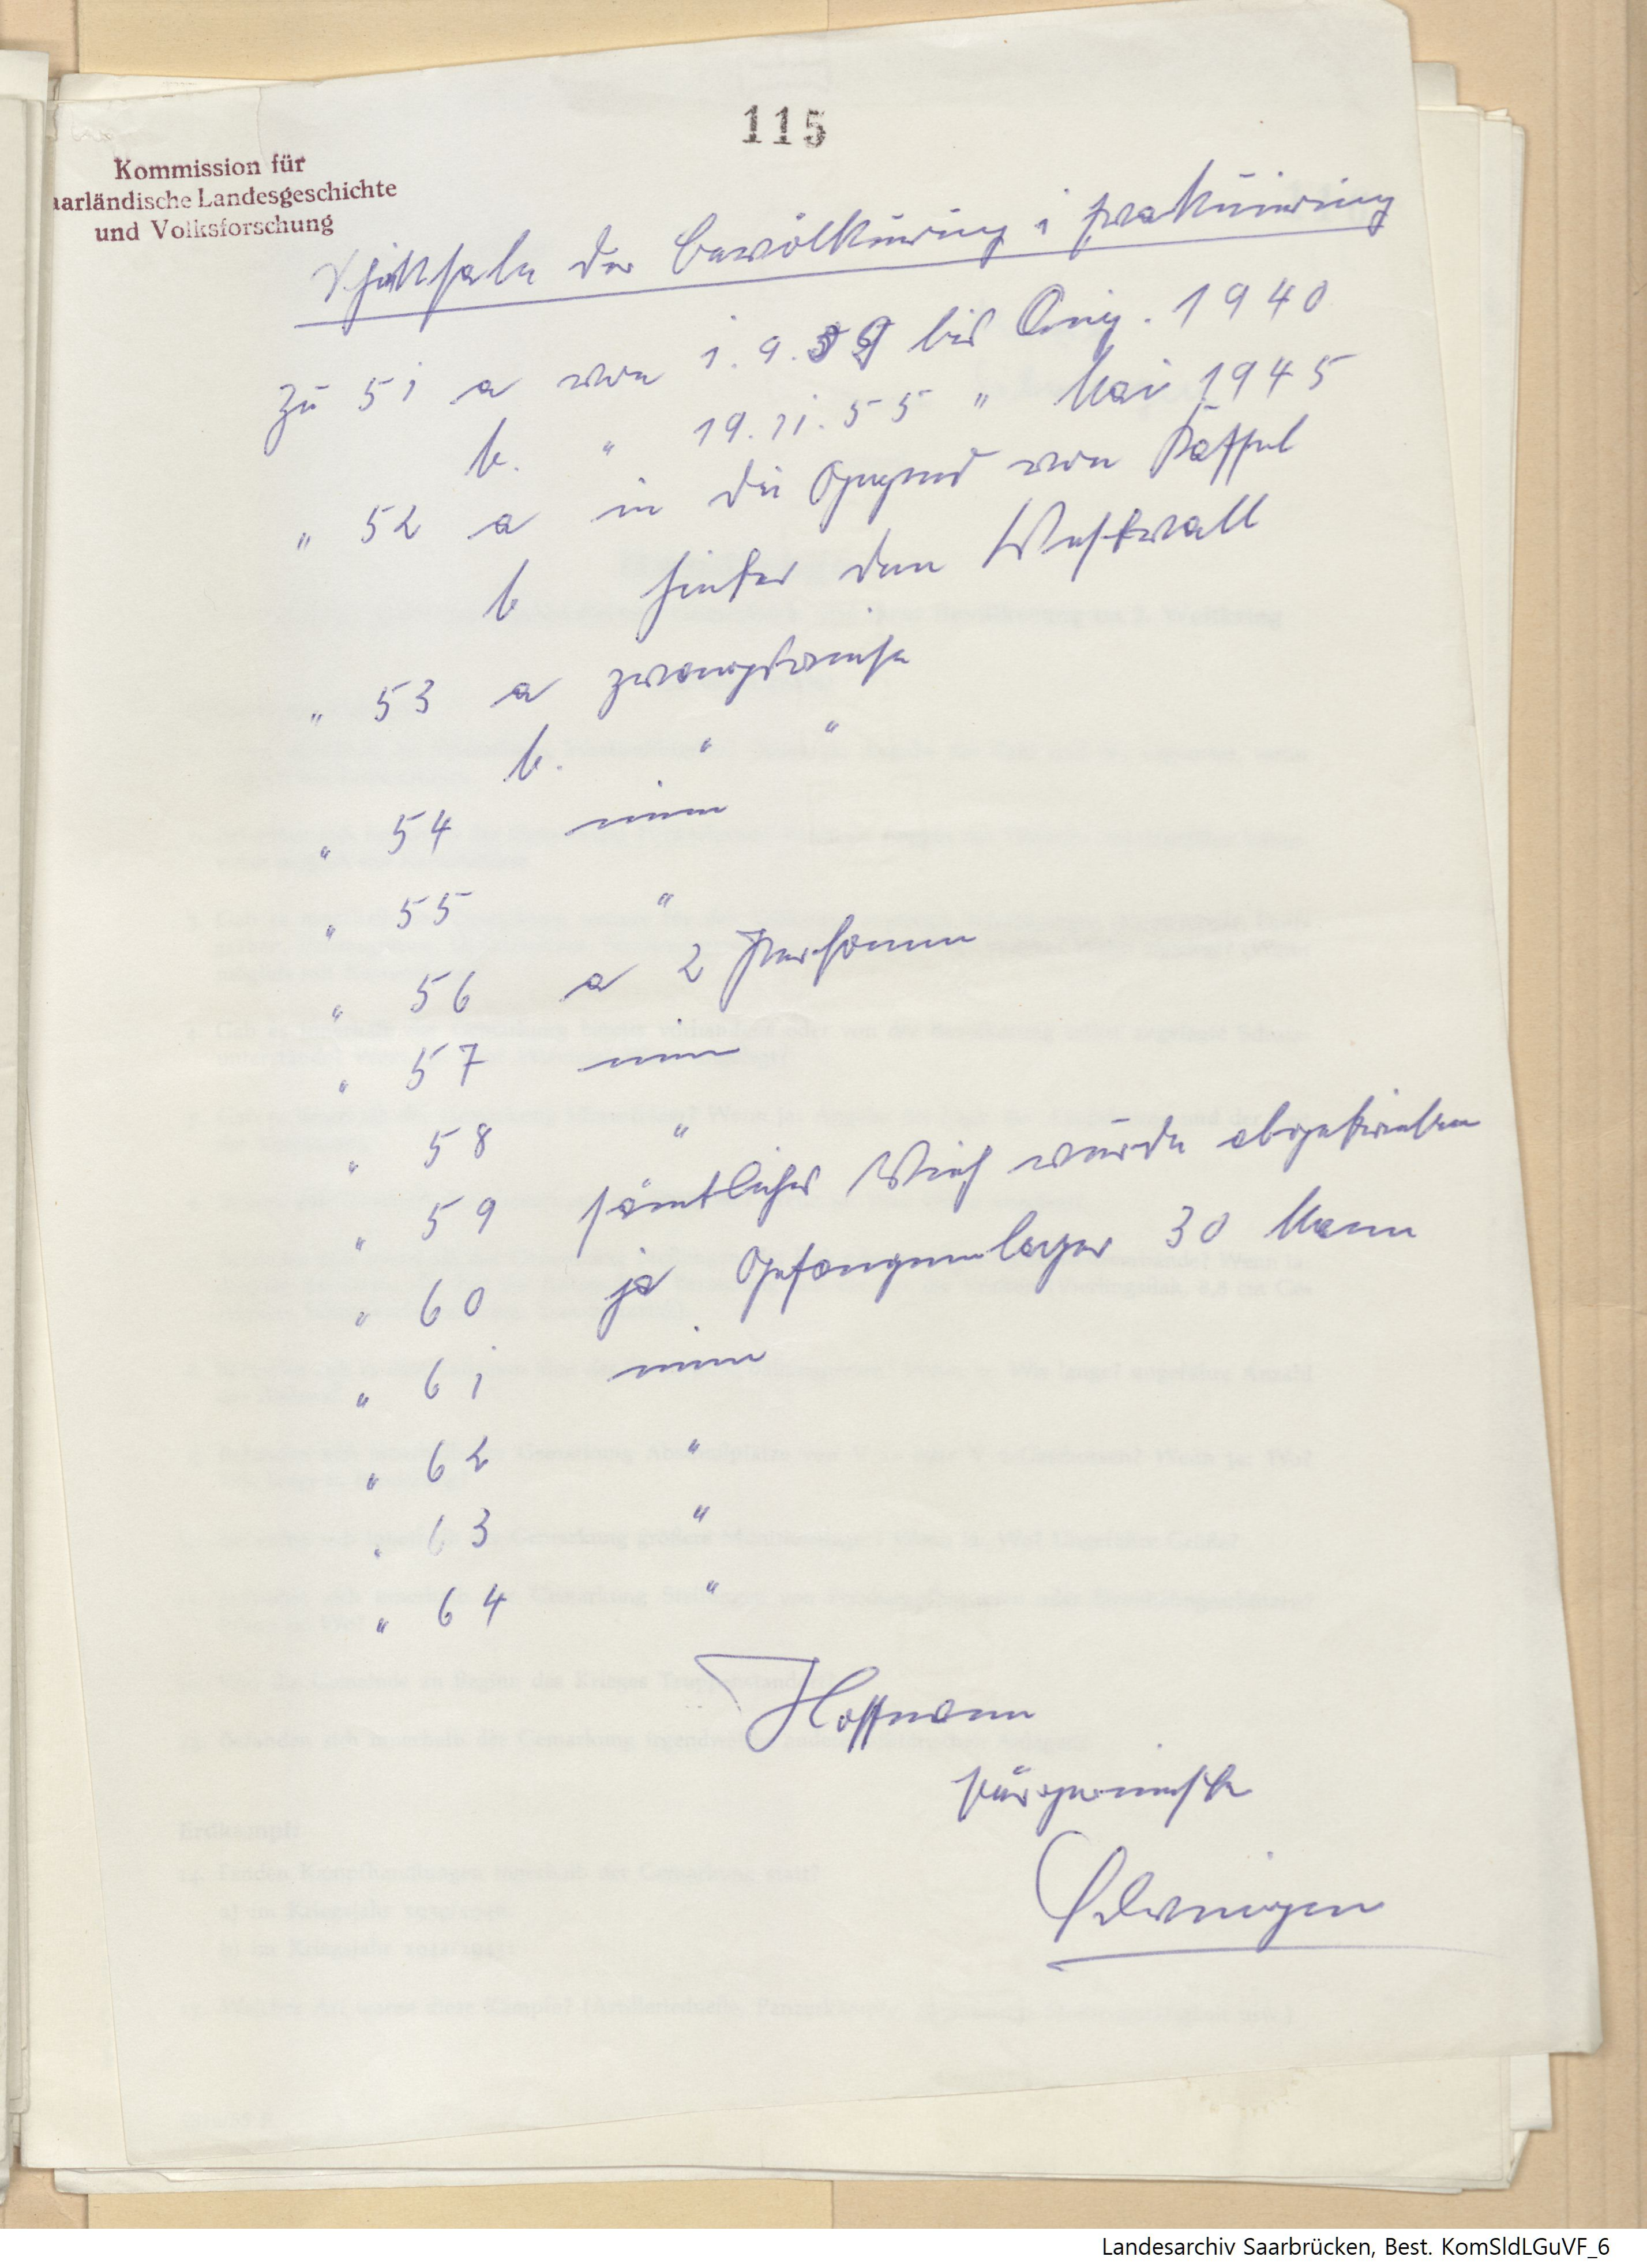 115
Kommission für
aarländische Landesgeschichte
und Volksforschung
Schicksale der Bevölkerung i
zu 51 a von 1.9.39 bis Aug. 1940
b. " 19.11.55 " Mai 1945
" 52 a in die Gegend von Kassel
b hinter den Westwall
" 53 a zwangsweise
b. " "
" 54 nein
" 55 "
" 56 a 2 Personen
" 57 nein
" 58 "
" 59 sämtliches Vieh wurde abgetrieben
" 60 ja Gefangenenlager 30 Mann
" 61 nein
" 62 "
" 63 "
" 64 "
Hoffmann
Landesarchiv Saarbrücken, Best. KomSldLGuVF_6